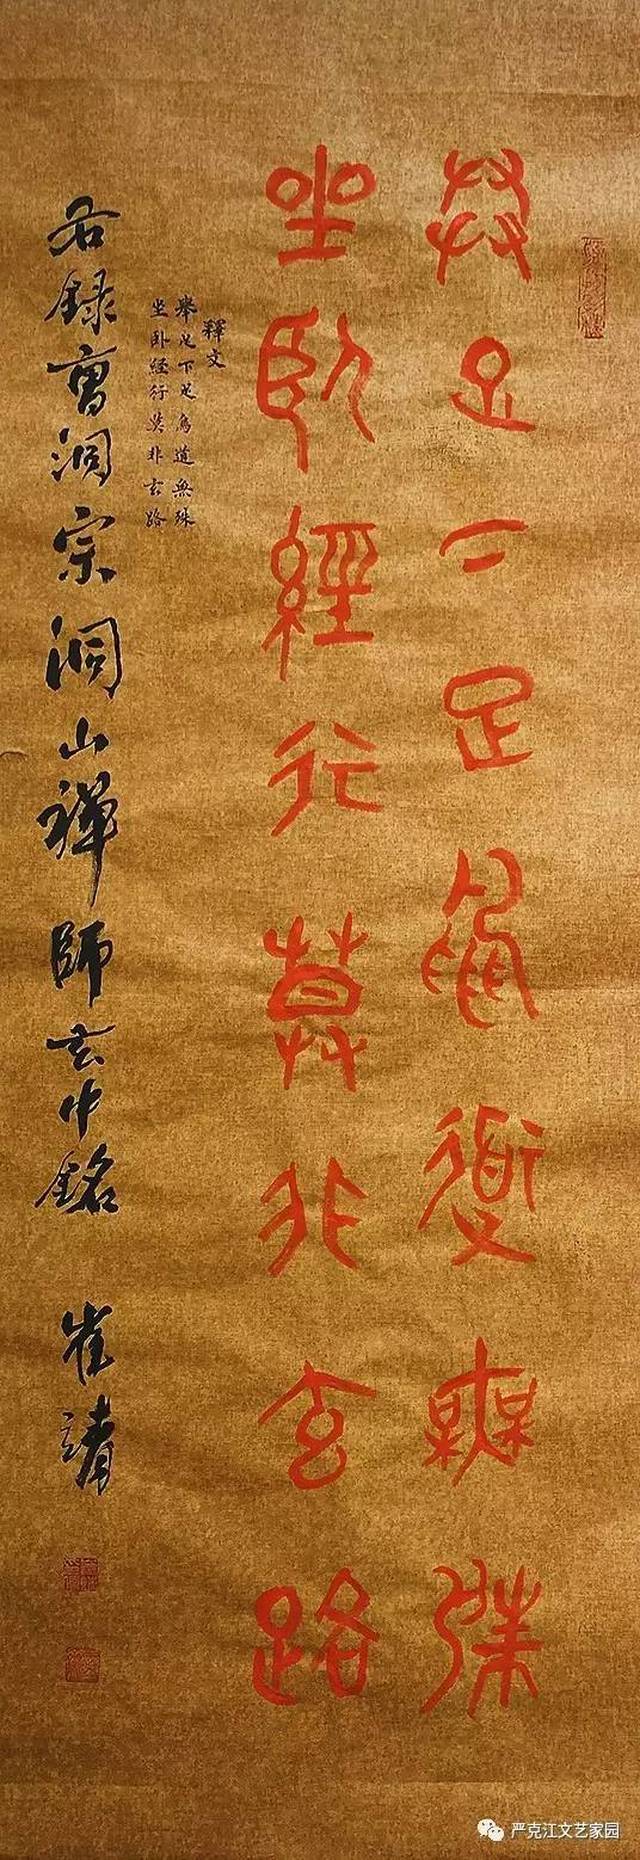 舉足下足鳥道無殊
坐卧經行莫非玄路
釋文
舉足下足鳥道無殊
坐卧經行莫非玄路
右録曹洞宗洞山禪師玄中銘
崔靖
严克江文艺家园